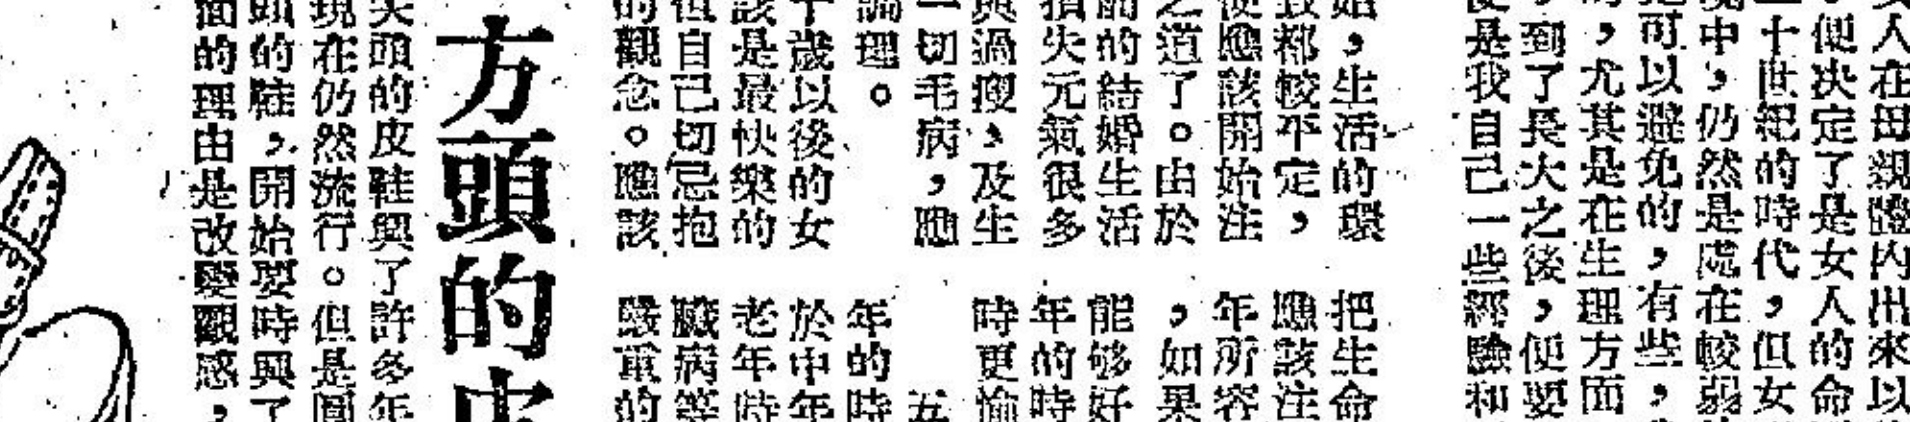 女人在母親體內出來以
，便决定了是女人的命
二十世紀的時代，但女
境中，仍然是處在較弱
可以避免的，有些，
，尤其是在生理方面
，到了長大之後，便要
是我自己一些經驗和
始，生活的環
致都較平定，
便應該開始注
之道了。由於
的結婚生活
損失元氣很多
與過瘦，及生
一切毛病，應
論理。
十歲以後的女
該是最快樂的
但自己切忌抱
的觀念。應該
把生命
應該注
年所容
，如果
能够好
年的時
時更愉
五
年的時
於中年
老年時
臟病等
嚴重的
方頭的皮
尖頭的皮鞋興了許多年
現在仍然流行。但是圓
頭的鞋，開始要時興了
面的理由是改變觀感，